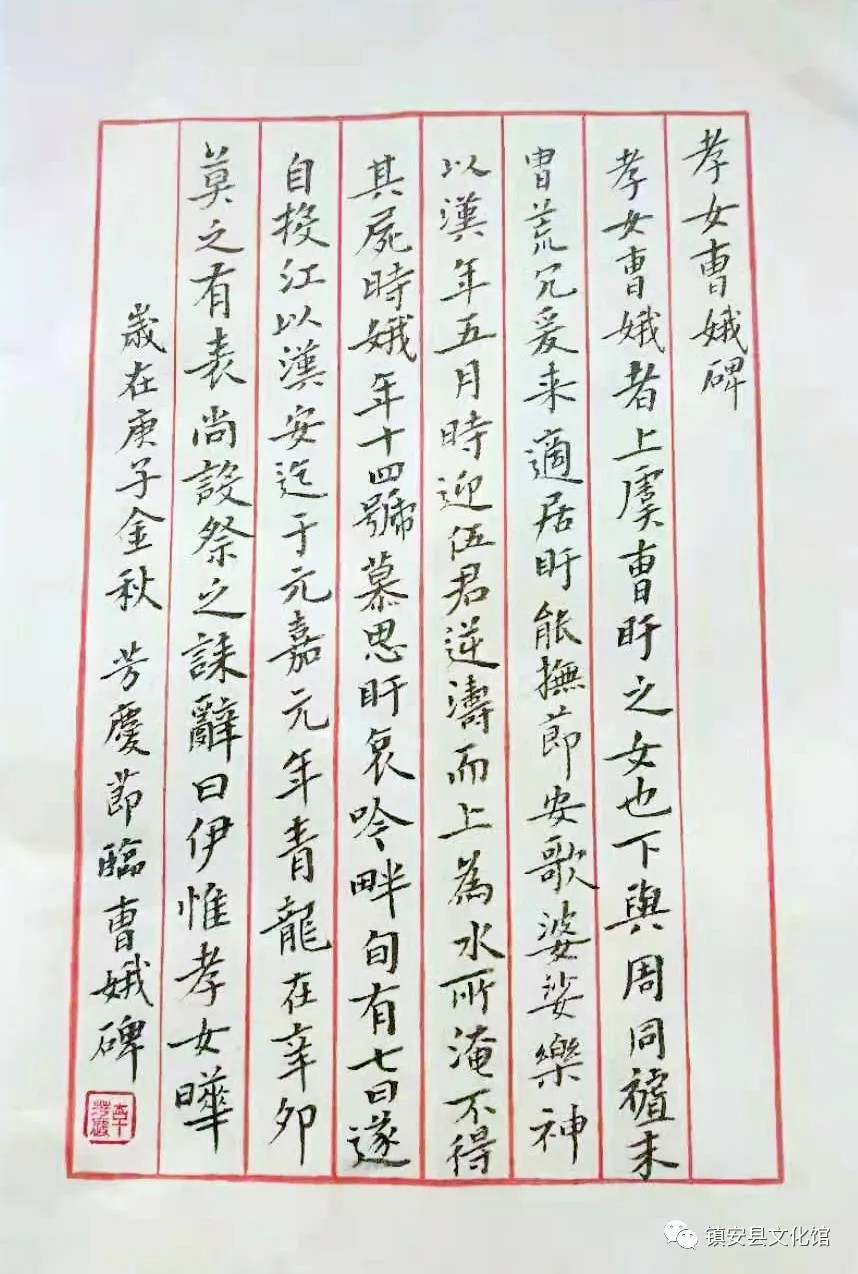 孝女曹娥碑
孝女曹娥者上虞曹盱之女也下與周同禃末
冑荒冗爰来適居盱能撫節安歌婆娑樂神
以漢年五月時迎伍君逆濤而上為水所淹不得
其屍時娥年十四號慕思盱哀吟畔旬有七日遂
自投江以漢安迄于元嘉元年青龍在辛卯
莫之有表尚設祭之誄辭曰伊惟孝女曄
歲在庚子金秋 芳慶節臨曹娥碑
镇安县文化馆